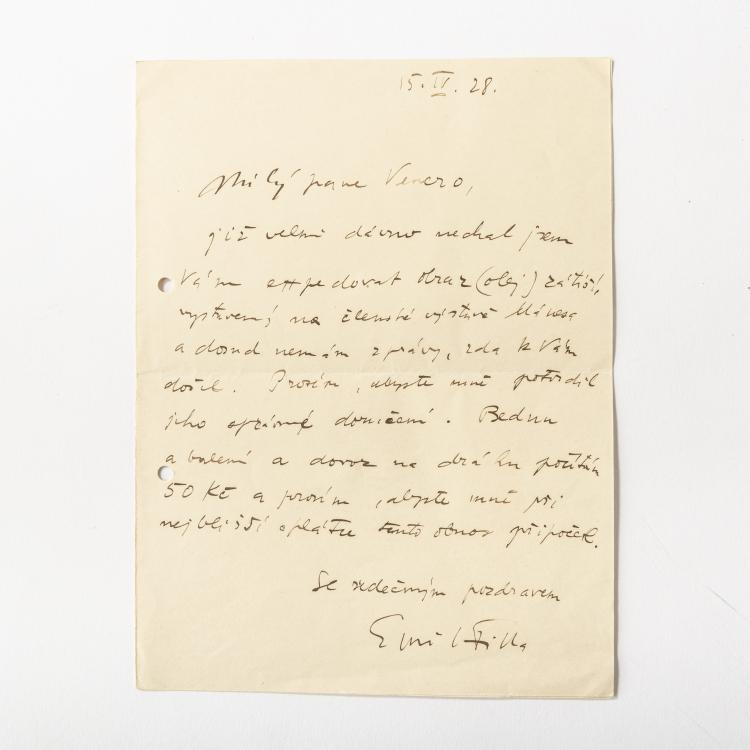 15. II. 28.
Milý pane Venero,
již velmi dávno nechal jsem
Vám expedovat obraz (olej) zátiší,
vystavený na členské výstavě Mánesa
a dosud nemám zprávy, zda k Vám
došel. Prosím, abyste mně potvrdil
jeho správné doručení. Bednu
a balení a dovoz na dráhu počítám
50 Kč a prosím, abyste mně při
nejbližší splátce tento obnos připočetl.
Se srdečným pozdravem
Emil Filla